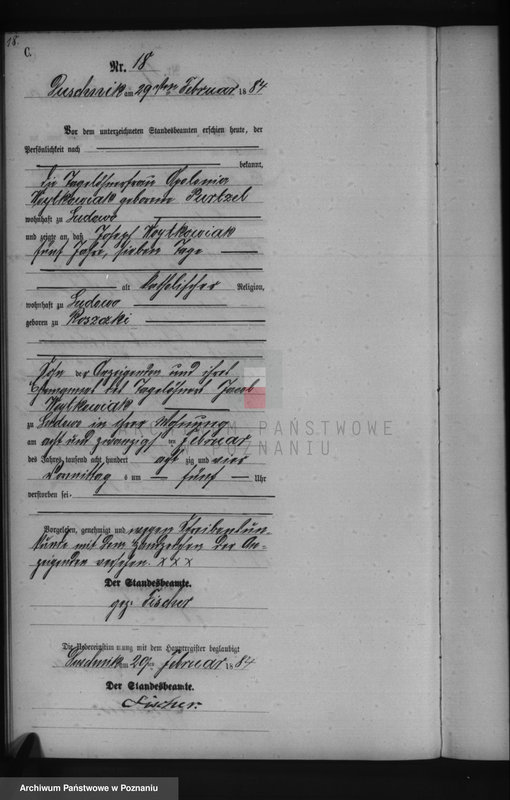 18.
C.
Nr. 18
Duschnik am 29ten Februar 1884
Vor dem unterzeichneten Standesbeamten erschien heute, der
Persönlichkeit nach
bekannt,
die Tagelöhnerfrau Apolonia
Woytkowiak geborene Purtzel
wohnhaft zu Ludowo
und zeigte an, daß Joseph Woytkowiak
fünf Jahre, sieben Tage
alt katholischer Religion,
wohnhaft zu Ludowo
geboren zu Koszczki
Sohn der Anzeigenden und ihres
Ehemannes des Tagelöhners Jacob
Woytkowiak
zu Ludowo in ihrer Wohnung
am acht und zwanzigsten Februar
des Jahres tausend acht hundert acht zig und vier
Vormittag s um fünf Uhr
verstorben sei.
Vorgelesen, genehmigt und wegen Schreibensun-
kunde mit dem Handzeichen der An-
zeigenden versehen. x x x
Der Standesbeamte.
gez. Fischer
Die Uebereinstimmung mit dem Hauptregister beglaubigt
Duschnik am 29ten Februar 1884
Der Standesbeamte.
Fischer.
ARCHIWUM PAŃSTWOWE
W POZNANIU
Archiwum Państwowe w Poznaniu